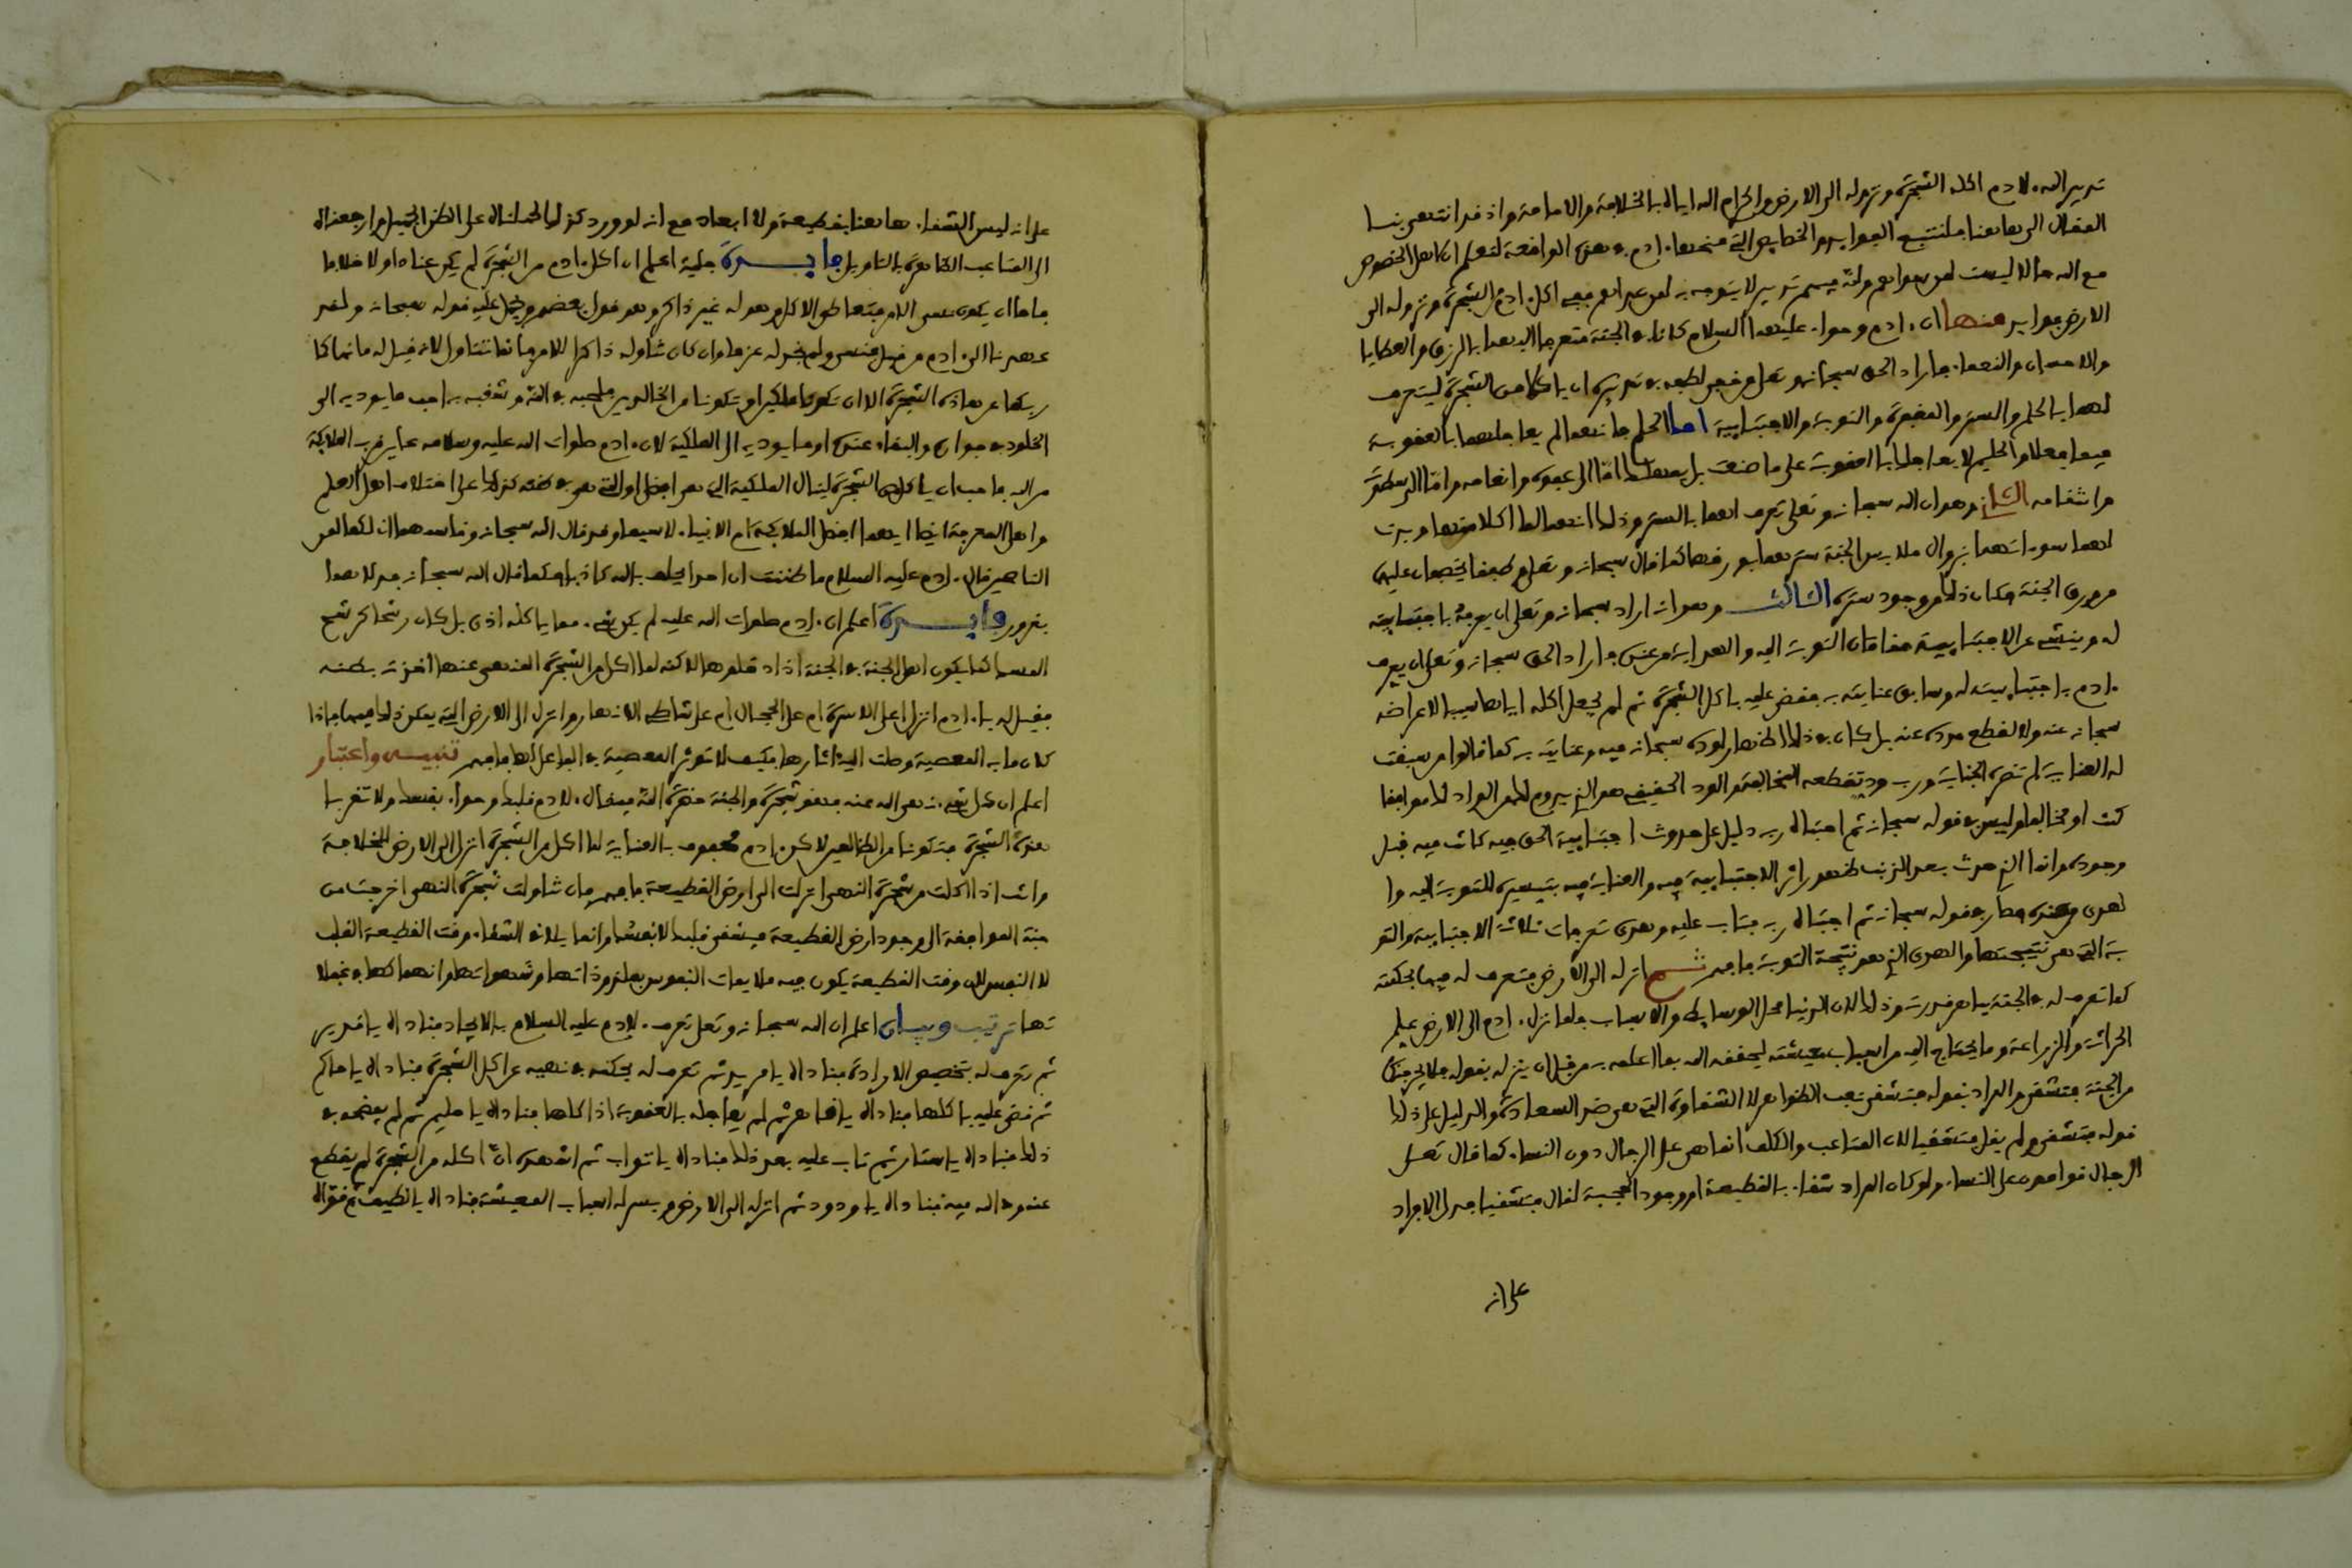 تدبير الله لادم اكله الشجرة ونزوله الى الارض واكرام الله اياه بالخلافة والامامة واذ قد انتهى بنا
المقال الى هاهنا فلنتتبع الفوايد والخصايص التي منحها ادم في هذه الواقعة لتعلم ان لاهل الخصوص
مع الله حالا ليست لمن سواهم ولله فيهم تدبير لا يتوجه به لمن عداهم ففي اكل ادم الشجرة ونزوله الى
الارض فوايد منها ان ادم وحوا عليهما السلام كانا في الجنة متعرفا اليهما بالرزق والعطايا
والاحسان والنعما فاراد الحق سبحانه وتعلى من خفي لطفه في تدبيره ان ياكلا من الشجرة ليتعرف
لهما بالحلم والستر والمغفرة والتوبة والاجتبايية اما الحلم فانهما لم يعاجلهما بالعقوبة
فيما فعلا والحليم لا يعاجلك بالعقوبة على ما صنعت بل يمهلك اما الى عفوه وانعامه واما الى سطوته
وانتقامه الثاني وهو ان الله سبحانه وتعلى تعرف لهما بالستر وذلك انهما لما اكلا منها وبدت
لهما سوءاتهما بزوال ملابس الجنة سترهما بورقها كما قال سبحانه وتعلى وطفقا يخصفان عليهما
من ورق الجنة فكان ذلك من وجود ستره الثالث وهو انه اراد سبحانه وتعلى ان يعرفه باجتبايته
له وينشي عن الاجتبايية مقامان التوبة اليه والهداية من عنده فاراد الحق سبحانه وتعلى ان يعرف
ادم باجتبايته له وسابق عنايته به فقضى عليه باكل الشجرة ثم لم يجعل اكله اياها سببا لاعراضه
سبحانه عنه ولا لقطع مدده عنه بل كان في ذلك اظهار لوده سبحانه فيه وعنايته به كما قالوا من سبقت
له العناية لم تضره الجناية ورب ود تقطعه المخالفة والود الحقيقي هو الذي يدوم لك من الواد لك موافقا
كنت او مخالفا وليس في قوله سبحانه ثم اجتباه ربه دليل على حدوث اجتبايية الحق فيه كانت فيه قبل
وجوده وانما الذي حدث بعد الذنب ظهور اثر الاجتبايية فيه والعناية فيه بتيسيره للتوبة اليه وا
لهدى من عنده فصار في قوله سبحانه ثم اجتباه ربه فتاب عليه وهدى تعرفات ثلاثة الاجتبايية والتو
بة التي هي نتيجتها والهدى الذي هو نتيجة التوبة فافهم ثم انزله الى الارض فتعرف له فيها بحكمته
كما تعرف له في الجنة بباهر قدرته وذلك لان الدنيا محل الوسايط والاسباب فلما نزل ادم الى الارض علم
الحراثة والزراعة وما يحتاج اليه من اسباب معيشته ليحققه الله بما اعلمه به من قبل ان ينزله بقوله فلا يخرجنكما
من الجنة فتشقى والمراد بقوله فتشقى تعب الظواهر لا الشقاوة التي هي ضد السعادة والدليل على ذلك
قوله فتشقى ولم يقل فتشقيا لان المتاعب والكلف انما هي على الرجال دون النساء كما قال تعلى
الرجال قوامون على النساء ولو كان المراد شقاء بالقطيعة او وجود الحجبة لقال فتشقيا فدل الافراد
على انه
على انه ليس الشقاء هاهنا بقطيعة ولا ابعاد مع انه لو ورد كذلك لحملناه على الظن الجميل وارجعناه
الى المتاعب الظاهرة بالتاويل فايدة جلية اعلم ان اكل ادم من الشجرة لم يكن عنادا ولا خلافا
فاما ان يكون نسي الامر فتعاطى الاكل وهو له غير ذاكر وهو قول بعضهم ويحمل عليه قوله سبحانه ولقد
عهدنا الى ادم من قبل فنسي ولم نجد له عزما وان كان تناوله ذاكرا للامر فانما تناول لانه قيل له ما نهاكما
ربكما عن هذه الشجرة الا ان تكونا ملكين او تكونا من الخالدين فلحبه في الله وشغفه به احب ما يوديه الى
الخلود في جواره والبقاء عنده او ما يوديه الى الملكية لان ادم صلوات الله عليه وسلامه عاين قرب الملايكة
من الله فاحب ان ياكل من الشجرة لينال الملكية التي هي افضل او التي هي في ظنه كذلك على اختلاف اهل العلم
واهل المعرفة ايضا ايهما افضل الملايكة ام الانبياء لا سيما وقد قال الله سبحانه وقاسمهما اني لكما لمن
الناصحين قال ادم عليه السلام ما ظننت ان احدا يحلف بالله كاذبا فكما قال الله سبحانه فدلاهما
بغرور فايدة اعلم ان ادم صلوات الله عليه لم يكن شيء مما ياكله اذى بل كان رشحا كرشح
المسك كما يكون اهل الجنة في الجنة اذا دخلوها لاكنه لما اكل من الشجرة الذي نهي عنها اخذته بطنه
فقيل له يا ادم انزل اعلى الاسرة ام على الحجال ام على شاطئ الانهار انزل الى الارض التي يمكن ذلك فيها فاذا
كان ما به المعصية وصلت اليه اثارها فكيف لا توثر المعصية في الفاعل لها فافهم تنبيه واعتبار
اعلم ان كل شيء نهى الله عنه فهو شجرة والجنة حضرة الله فيقال لادم قلبك وحوا نفسك ولا تقربا
هذه الشجرة فتكونا من الظالمين لاكن ادم محفوف بالعناية لما اكل من الشجرة انزل الى الارض للخلافة
وانت اذا اكلت من شجرة النهي انزلت الى ارض القطيعة فافهم فان تناولت شجرة النهي اخرجت من
جنة الموافقة الى وجود ارض القطيعة فيشقى قلبك لا نفسك وانما يلاقي الشقاء وقت القطيعة القلب
لا النفس لان وقت القطيعة يكون فيه ملايمات النفوس من ملذوذاتها وشهواتها وانهماكها في غفلا
تها ترتيب وبيان اعلم ان الله سبحانه وتعلى تعرف لادم عليه السلام بالايجاد فناداه يا قدير
ثم تعرف له بتخصيص الارادة فناداه يا مريد ثم تعرف له بحكمه في نهيه عن اكل الشجرة فناداه يا حاكم
ثم قضى عليه باكلها فناداه يا قاهر ثم لم يعاجله بالعقوبة اذ اكلها فناداه يا حليم ثم لم يفضحه في
ذلك فناداه يا ستار ثم تاب عليه بعد ذلك فناداه يا تواب ثم اشهده ان اكله من الشجرة لم يقطع
عنه وده فيه فناداه يا ودود ثم انزله الى الارض ويسر له اسباب المعيشة فناداه يا لطيف ثم قواه